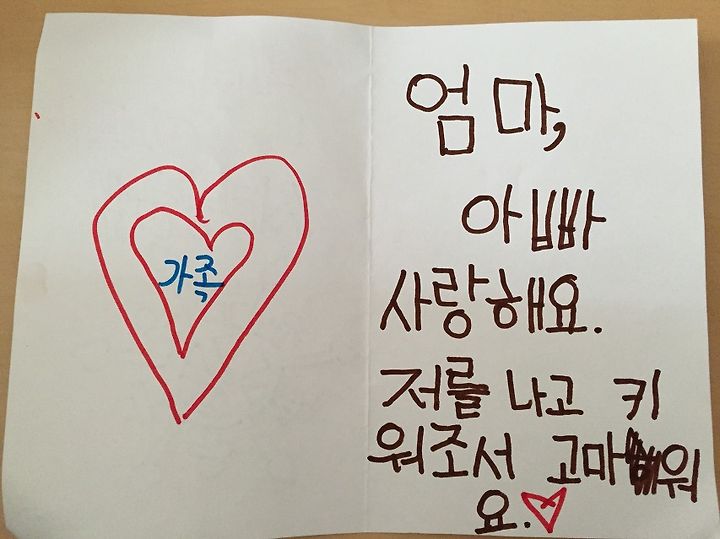 가족
엄마,
아빠
사랑해요.
저를 나고 키
워조서 고마워
요.